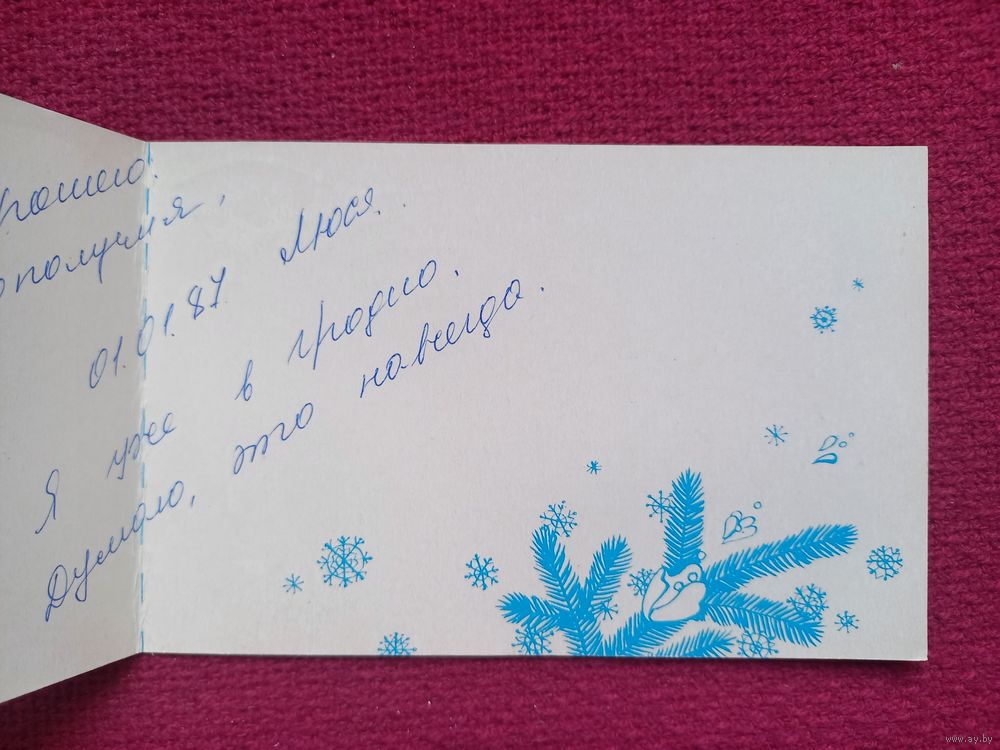 рошего.
ополучия,
01.01.87 Люся.
Я уже в гродно.
Думаю, это навсегда.
www.ay.by